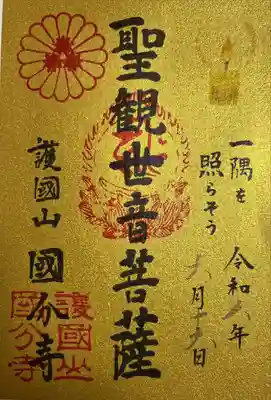 一隅を
照らそう
令和六年
六月十六日
聖観世音菩薩
護國山 國分寺
護國山
國分寺